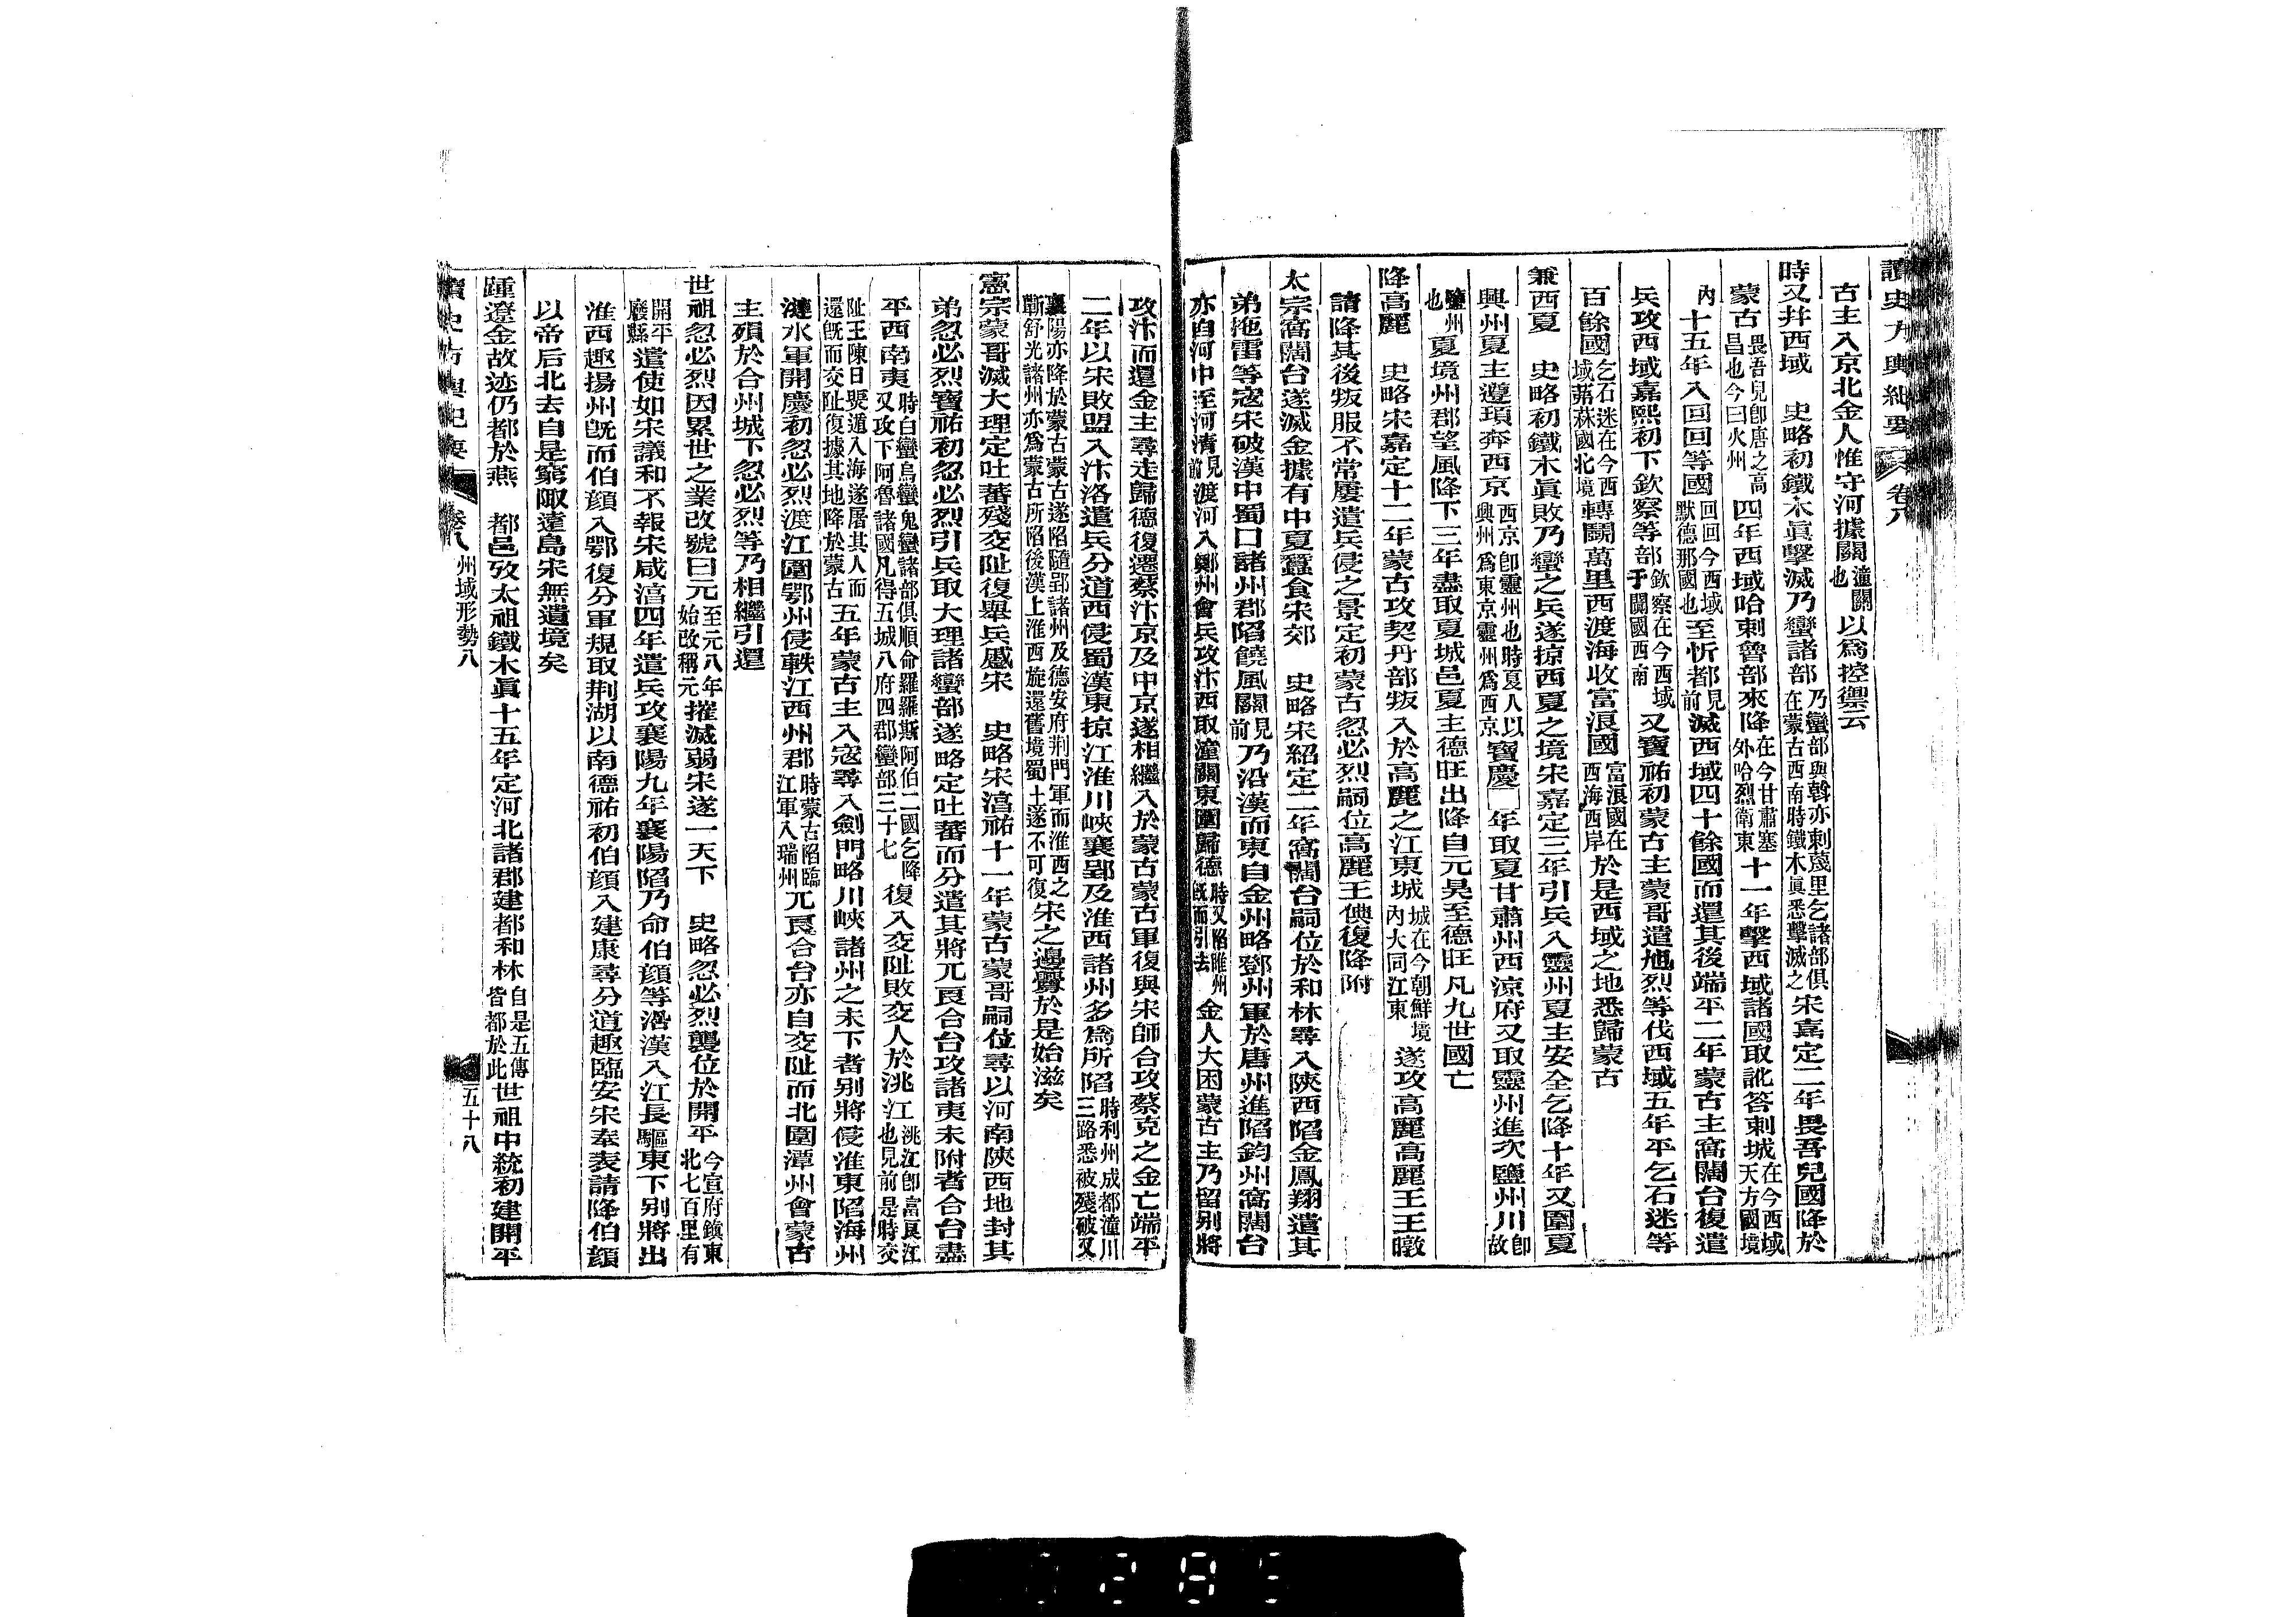 讀史方輿紀要 卷八
古主入京北金人惟守河據關潼關也以爲控禦云
時又幷西域 史略初鐵木眞擊滅乃蠻諸部乃蠻部與斡亦剌蔑里乞諸部俱在蒙古西南時鐵木眞悉擊滅之宋嘉定二年畏吾兒國降於
蒙古畏吾兒卽唐之高昌也今曰火州四年西域哈剌魯部來降在今甘肅塞外哈烈衛東十一年擊西域諸國取訛答剌城在今西域天方國境
內十五年入回回等國回回今西域默德那國也至忻都見前滅西域四十餘國而還其後端平二年蒙古主窩闊台復遣
兵攻西域嘉熙初下欽察等部欽察在今西域于闐國西南又寶祐初蒙古主蒙哥遣旭烈等伐西域五年平乞石迷等
百餘國乞石迷在今西域菻國北境轉鬬萬里西渡海收富浪國富浪國在西海西岸於是西域之地悉歸蒙古
兼西夏 史略初鐵木眞敗乃蠻之兵遂掠西夏之境宋嘉定三年引兵入靈州夏主安全乞降十年又圍夏
興州夏主遵頊奔西京西京卽靈州也時夏人以興州爲東京靈州爲西京寶慶二年取夏甘肅州西涼府又取靈州進次鹽州川卽故
鹽州也夏境州郡望風降下三年盡取夏城邑夏主德旺出降自元昊至德旺凡九世國亡
降高麗 史略宋嘉定十二年蒙古攻契丹部叛入於高麗之江東城城在今朝鮮境內大同江東遂攻高麗高麗王王暾
請降其後叛服不常屢遣兵侵之景定初蒙古忽必烈嗣位高麗王倎復降附
太宗窩闊台遂滅金據有中夏蠶食宋郊 史略宋紹定二年窩闊台嗣位於和林尋入陝西陷金鳳翔遣其
弟拖雷等寇宋破漢中蜀口諸州郡陷饒風關見前乃沿漢而東自金州略鄧州軍於唐州進陷鈞州窩闊台
亦自河中至河淸見前渡河入鄭州會兵攻汴西取潼關東圍歸德時又陷睢州旣而引去金人大困蒙古主乃留別將
攻汴而還金主尋走歸德復遷蔡汴京及中京遂相繼入於蒙古蒙古軍復與宋師合攻蔡克之金亡端平
二年以宋敗盟入汴洛遣兵分道西侵蜀漢東掠江淮川峽襄郢及淮西諸州多爲所陷時利州成都潼川三路悉被殘破又
襄陽亦降於蒙古蒙古遂陷隨郢諸州及德安府荆門軍而淮西之蘄舒光諸州亦爲蒙古所陷後漢上淮西旋還舊境蜀土遂不可復宋之邊釁於是始滋矣
憲宗蒙哥滅大理定吐蕃殘交阯復舉兵蹙宋 史略宋淳祐十一年蒙古蒙哥嗣位尋以河南陝西地封其
弟忽必烈寶祐初忽必烈引兵取大理諸蠻部遂略定吐蕃而分遣其將兀良合台攻諸夷未附者合台盡
平西南夷時白蠻烏蠻鬼蠻諸部俱順命羅羅斯阿伯二國乞降又攻下阿魯諸國凡得五城八府四郡蠻部三十七復入交阯敗交人於洮江洮江卽富良江也見前是時交
阯王陳日煚遁入海遂屠其人而還旣而交阯復據其地降於蒙古五年蒙古主入寇尋入劍門略川峽諸州之未下者別將侵淮東陷海州
漣水軍開慶初忽必烈渡江圍鄂州侵軼江西州郡時蒙古陷臨江軍入瑞州兀良合台亦自交阯而北圍潭州會蒙古
主殞於合州城下忽必烈等乃相繼引還
世祖忽必烈因累世之業改號曰元至元八年始改稱元摧滅弱宋遂一天下 史略忽必烈襲位於開平今宣府鎮東北七百里有
開平廢縣遣使如宋議和不報宋咸淳四年遣兵攻襄陽九年襄陽陷乃命伯顏等濳漢入江長驅東下別將出
淮西趣揚州旣而伯顏入鄂復分軍規取荆湖以南德祐初伯顏入建康尋分道趣臨安宋奉表請降伯顏
以帝后北去自是窮陬遠島宋無遺境矣
踵遼金故迹仍都於燕 都邑攷太祖鐵木眞十五年定河北諸郡建都和林自是五傳皆都於此世祖中統初建開平
讀史方輿紀要 卷八 州域形勢八 五十八